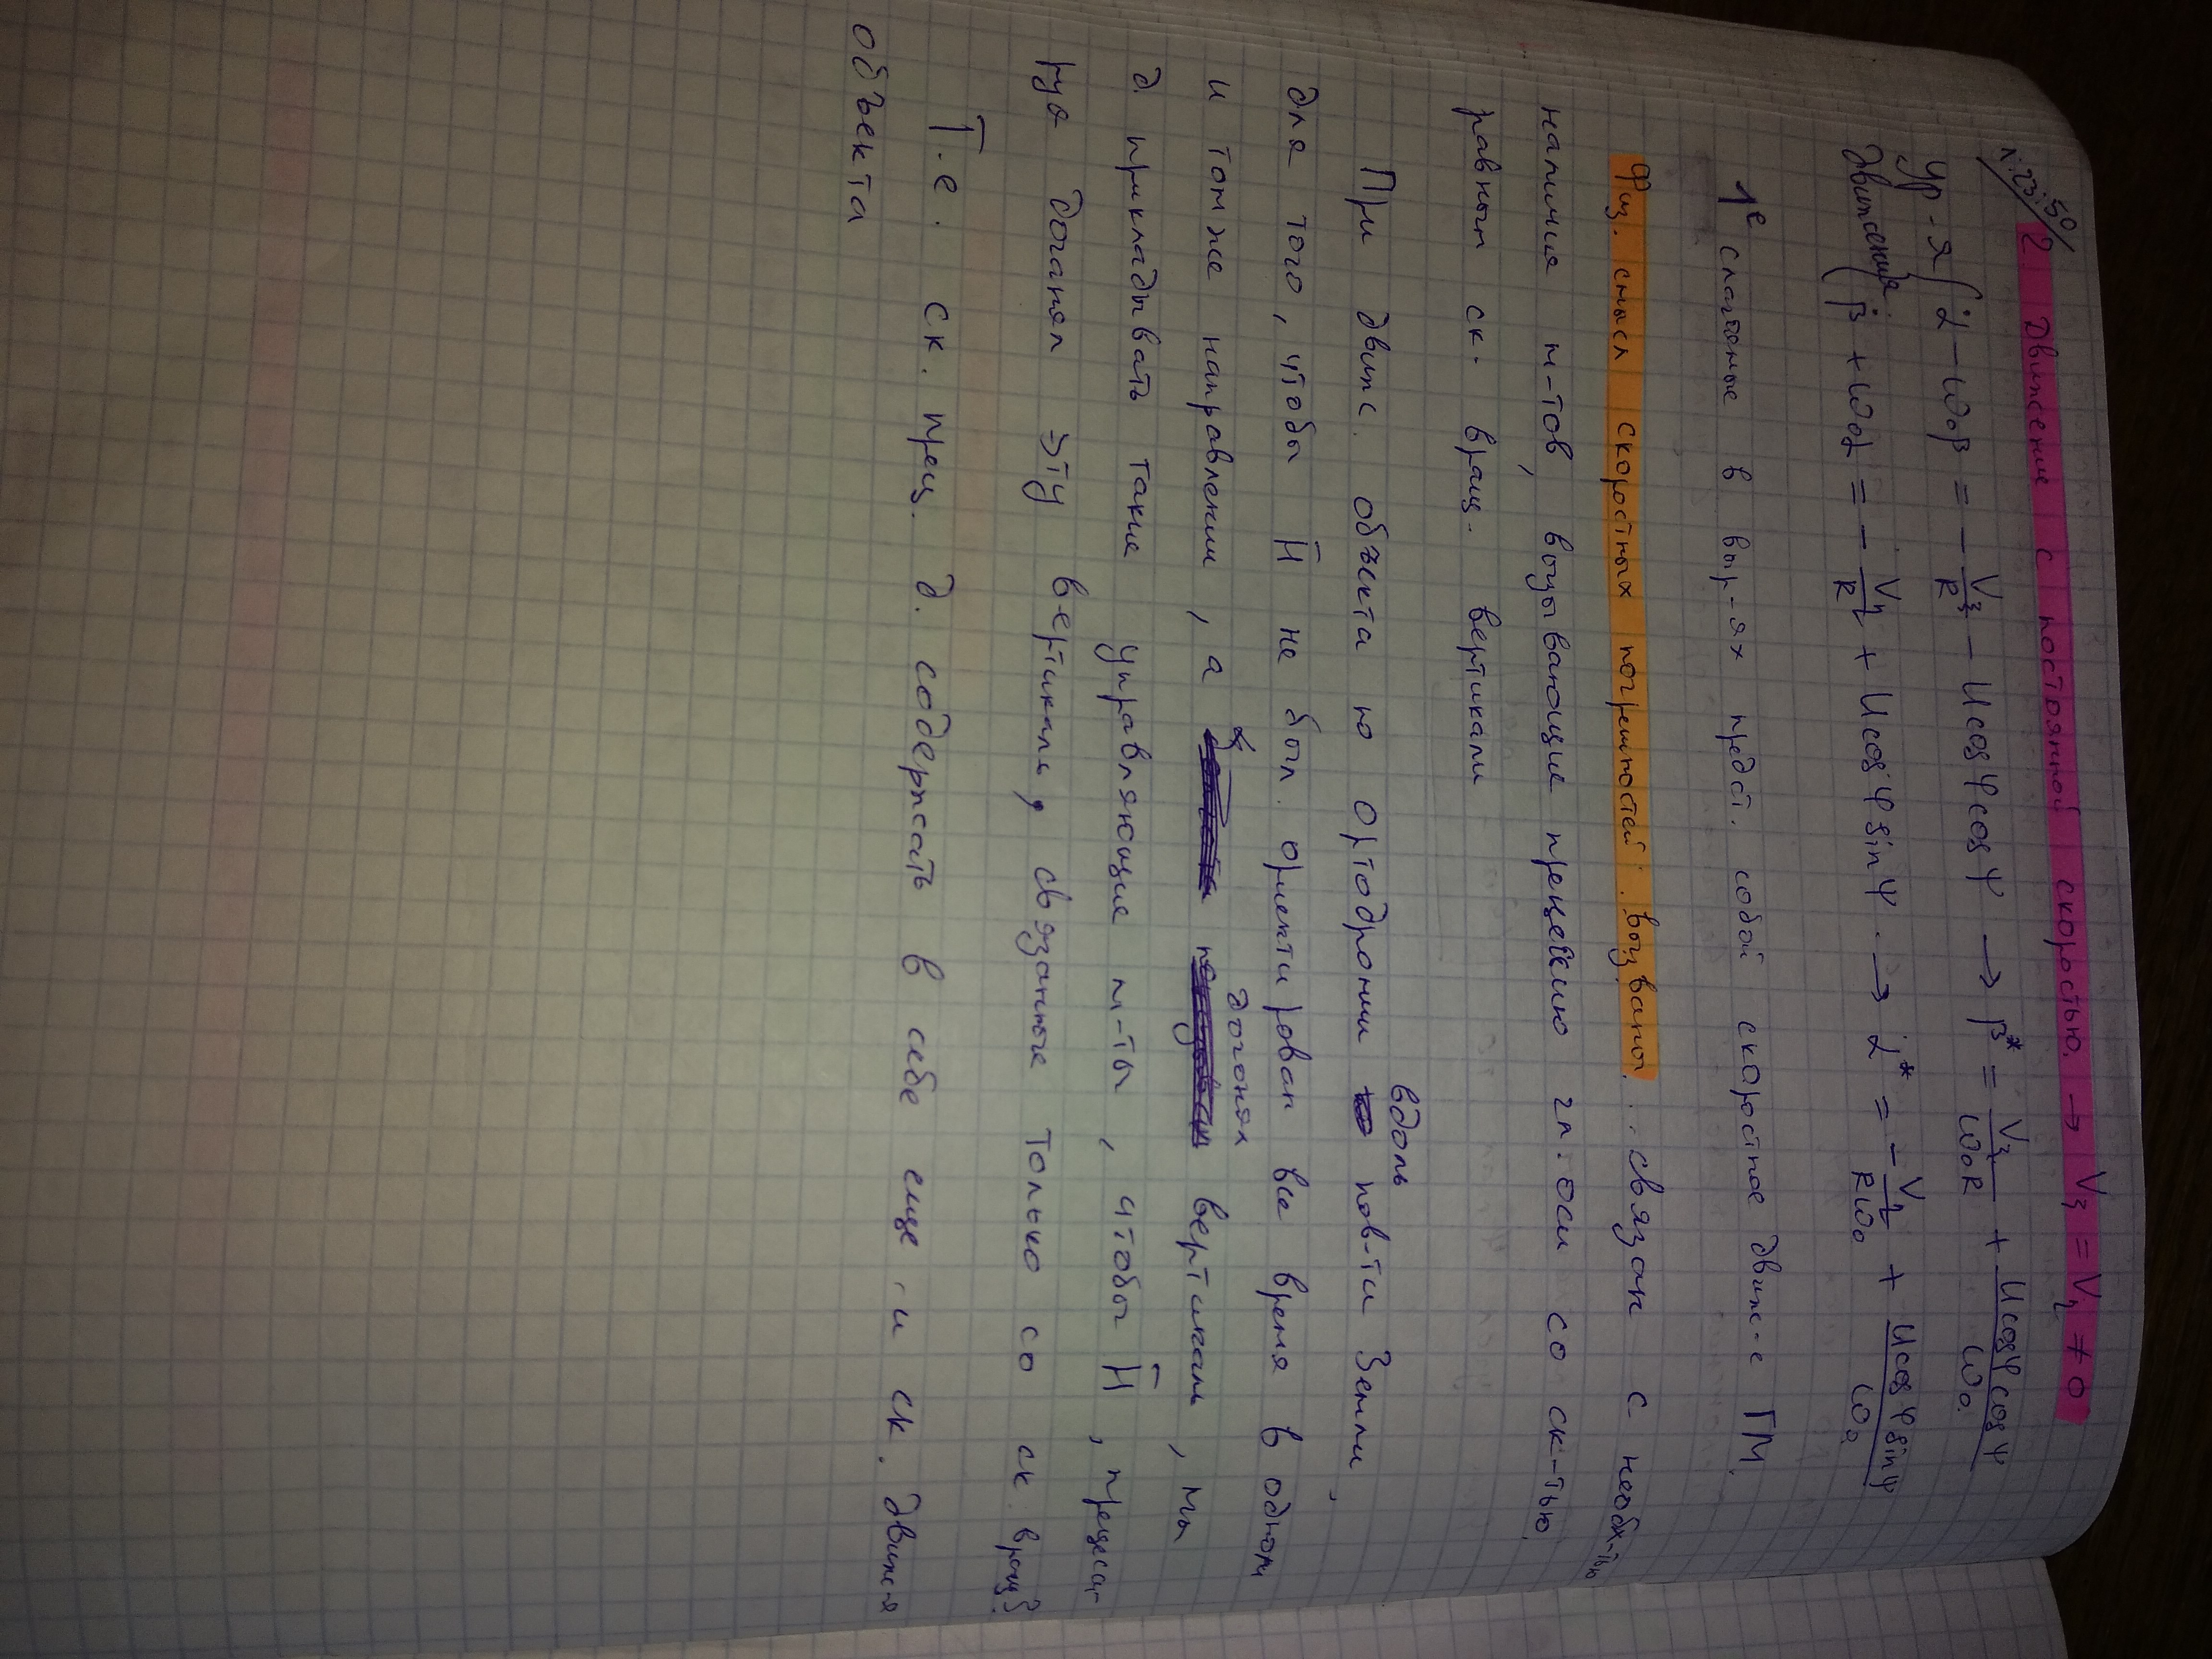 л.23.50/
2. Движение с постоянной скоростью. → Vξ = Vη ≠ 0
Ур-я { α̇ − ω₀β = − Vξ/R − Ucosφcosψ → β* = Vξ/ω₀R + Ucosφcosψ/ω₀
движения { β̇ + ω₀α = − Vη/R + Ucosφsinψ → α* = − Vη/Rω₀ + Ucosφsinψ/ω₀
1е слагаемые в выр-ях предст. собой скоростное движ-е ГМ.
Физ. смысл скоростных погрешностей. вызваны. .. связан с необх-тью
наличия м-тов, вызывающие прецессию гл. оси со ск-тью,
равным ск. вращ. вертикали
При движ. объекта ю ортодромии вдоль пов-ти Земли,
для того, чтобы H̄ не был ориентирован все время в одном
и том же направлении, а догонял вертикали, мы
д. прикладывать такие управляющие м-ты, чтобы H̄, прецесси-
руя догонял эту вертикаль, связанные только со ск. вращ З.
Т.е. ск. прец. д. содержать в себе еще и ск. движ-я
объекта